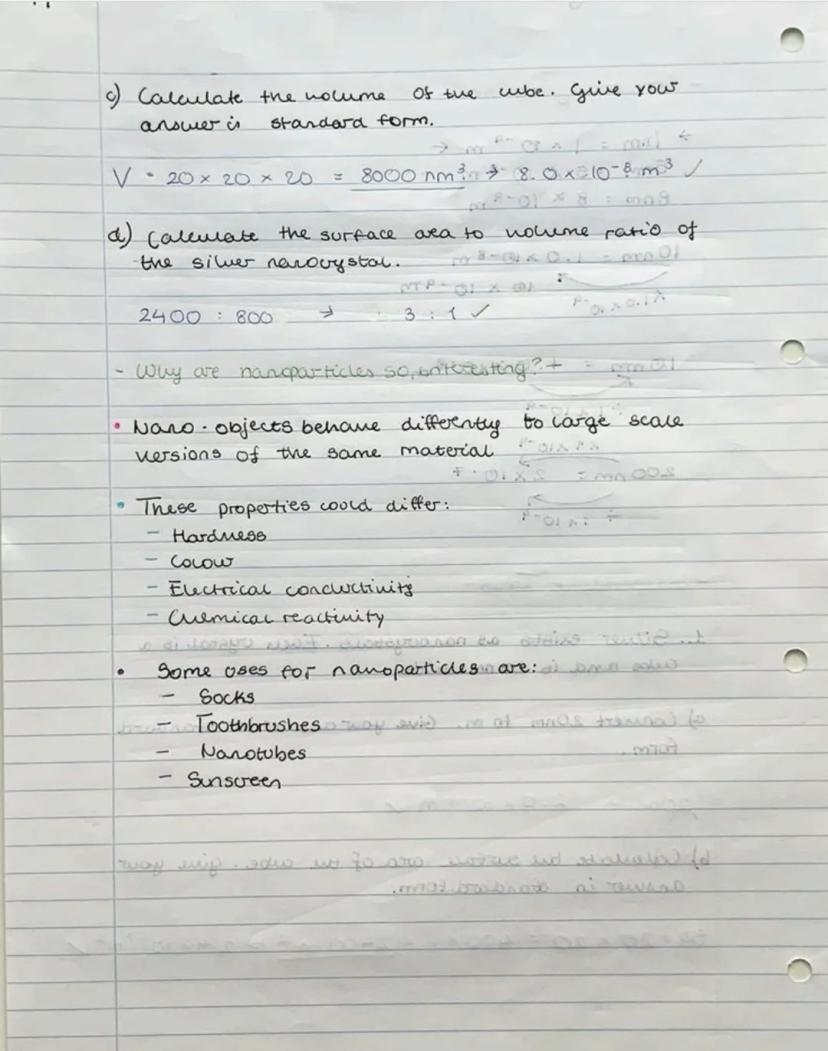 c) Calculate the volume of the cube. Give your
answer is standard form.
V = 20 × 20 × 20 = 8000 nm³ → 8.0 × 10⁻⁸ m³ ✓
d) Calculate the surface area to volume ratio of
the silver nanocrystal.
2400 : 800 → 3 : 1 ✓
- Why are nanoparticles so interesting?
• Nano-objects behave differently to large scale
versions of the same material
• These properties could differ:
- Hardness
- Colour
- Electrical conductivity
- Chemical reactivity
• Some uses for nanoparticles are:
- Socks
- Toothbrushes
- Nanotubes
- Sunscreen